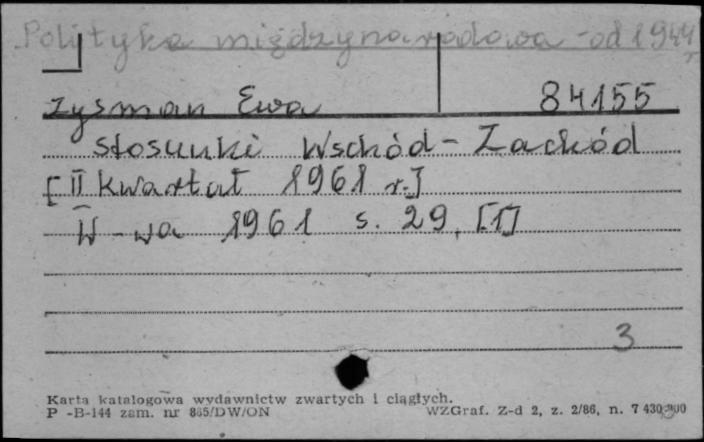 Polityka międzynarodowa - od 1944 r.
Zysman Ewa 84155
Stosunki Wschód - Zachód
[II kwartał 1961 r.]
W-wa 1961 s. 29, [1]
3
Karta katalogowa wydawnictw zwartych i ciągłych.
P -B-144 zam. nr 865/DW/ON WZGraf. Z-d 2, z. 2/86, n. 7 430